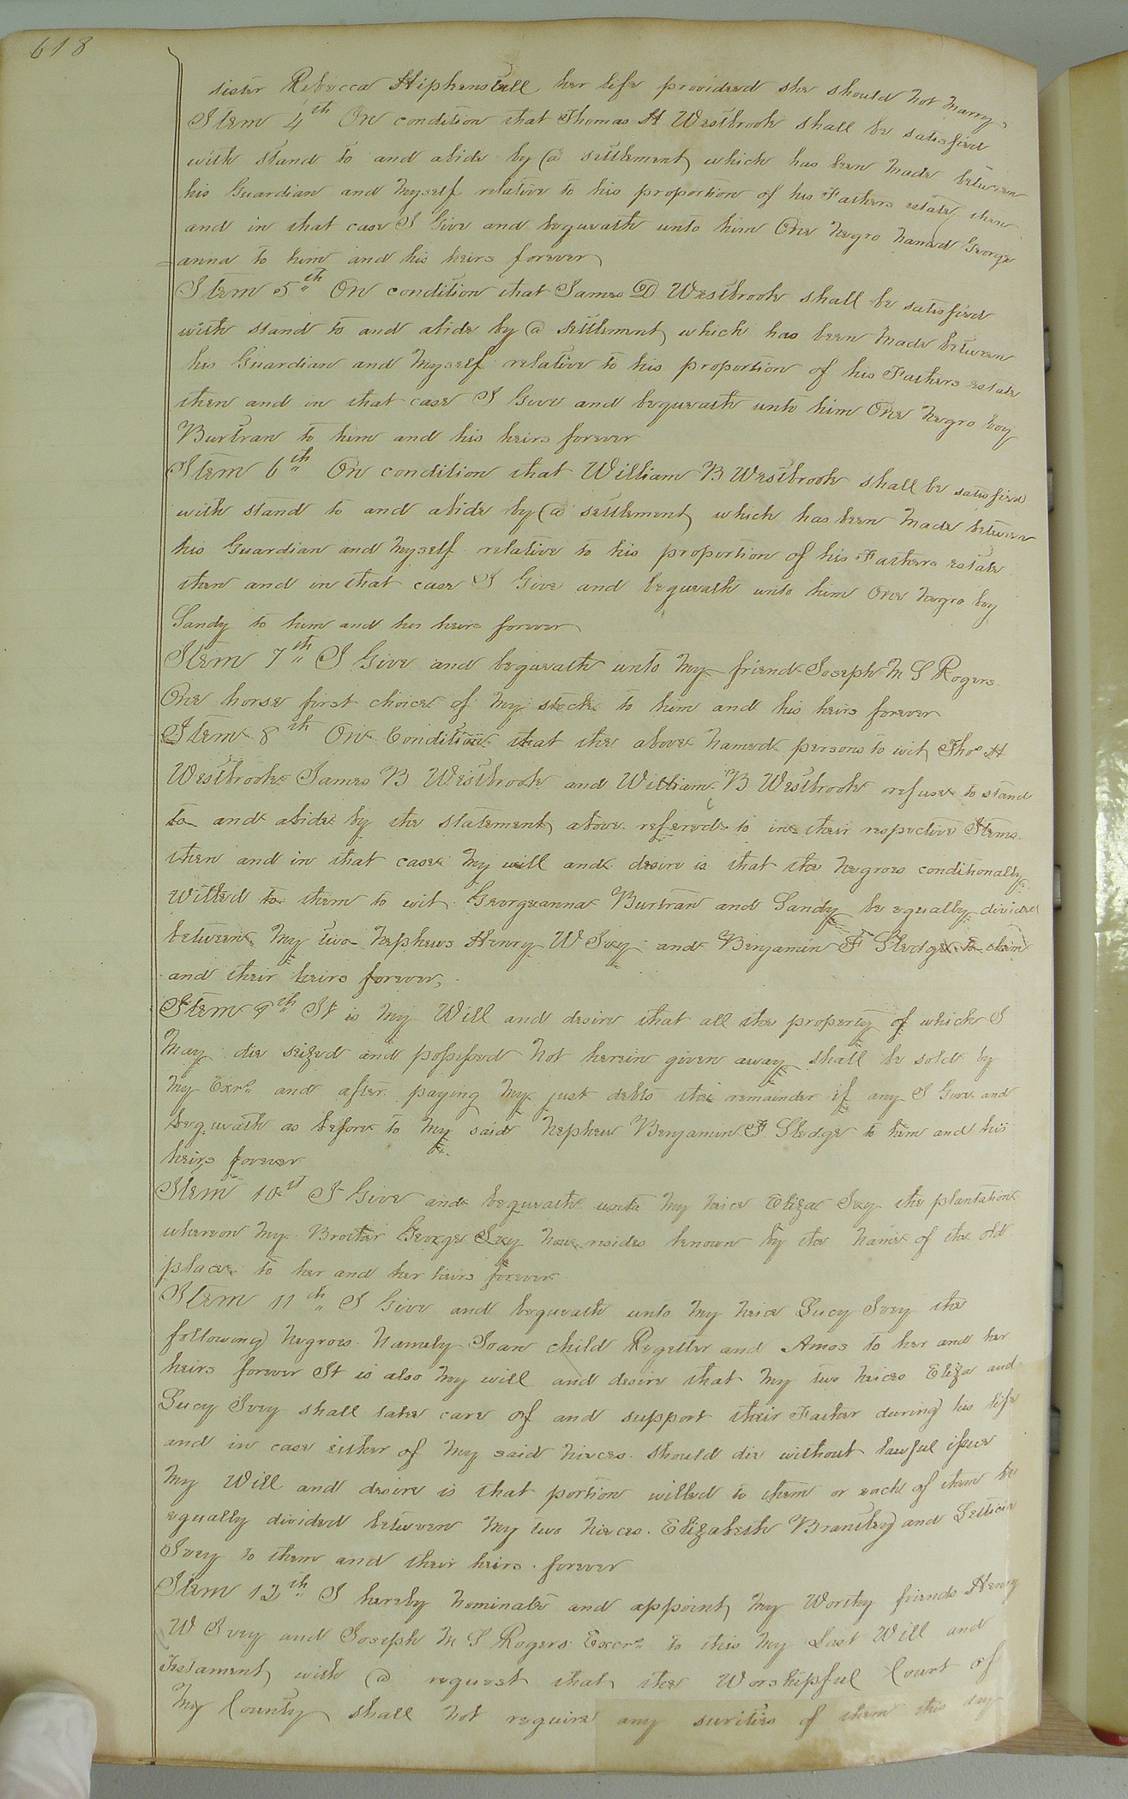 618
sister Rebecca Hiphenstall her life provided she should not marry,
Item 4th On condition that Thomas H Westbrook shall be satisfied
with stand to and abide by (a settlement) which has been made between
his Guardian and myself relative to his proportion of his Fathers estate then
and in that case I Give and bequeath unto him One negro named George
anna to him and his heirs forever
Item 5th On condition that James D Westbrook shall be satisfied
with stand to and abide by a settlement, which has been made between
his Guardian and myself relative to his proportion of his Fathers estate
then and in that case I Give and bequeath unto him One negro boy
Burtran to him and his heirs forever
Item 6th On condition that William B Westbrook shall be satisfied
with stand to and abide by (a settlement) which has been made between
his Guardian and myself relative to his proportion of his Fathers estate
then and in that case I Give and bequeath unto him One negro boy
Sandy to him and his heirs forever
Item 7th I Give and bequeath unto my friend Joseph M S Rogers
One horse first choice of my stock to him and his heirs forever
Item 8th On Condition that the above named persons to wit, Thos H
Westbrook James B Westbrook and William B Westbrook refuse to stand
to and abide by the statement, above refered to in their respective Items
then and in that case my will and desire is that the negroes conditionally
Willed to them to wit Georgeanna Burtran and Sandy be equally divided
between my two nephews Henry W Ivy and Benjamin F Sledge to them
and their heirs forever,
Item 9th It is my Will and desire that all the property of which I
may die seized and possessed not herein given away shall be sold by
my Exrs and after paying my just debts the remainder if any I Give and
bequeath as before to my said nephew Benjamin F Sledge to him and his
heirs forever
Item 10th I Give and bequeath unto my neice Eliza Ivy the plantation
whereon my Brother George Ivy now resides known by the name of the old
place to her and her heirs forever
Item 11th I Give and bequeath unto my neice Lucy Ivey the
following negroes namely Joan child Rogetter and Amos to her and her
heirs forever It is also my will and desire that my two neices Eliza and
Lucy Ivey shall take care of and support their Father during his life
and in case either of my said nieces should die without lawful issue
My Will and desire is that portion willed to them or each of them be
equally divided between my two nieces Elizabeth Brantley and Letticia
Ivey to them and their heirs forever
Item 12th I hereby nominate and appoint, my Worthy friends Henry
W Ivey and Joseph M S Rogers Excrs to this my Last Will and
Testament, with a request that, the Worshipful Court of
my County shall not require any surities of them this my